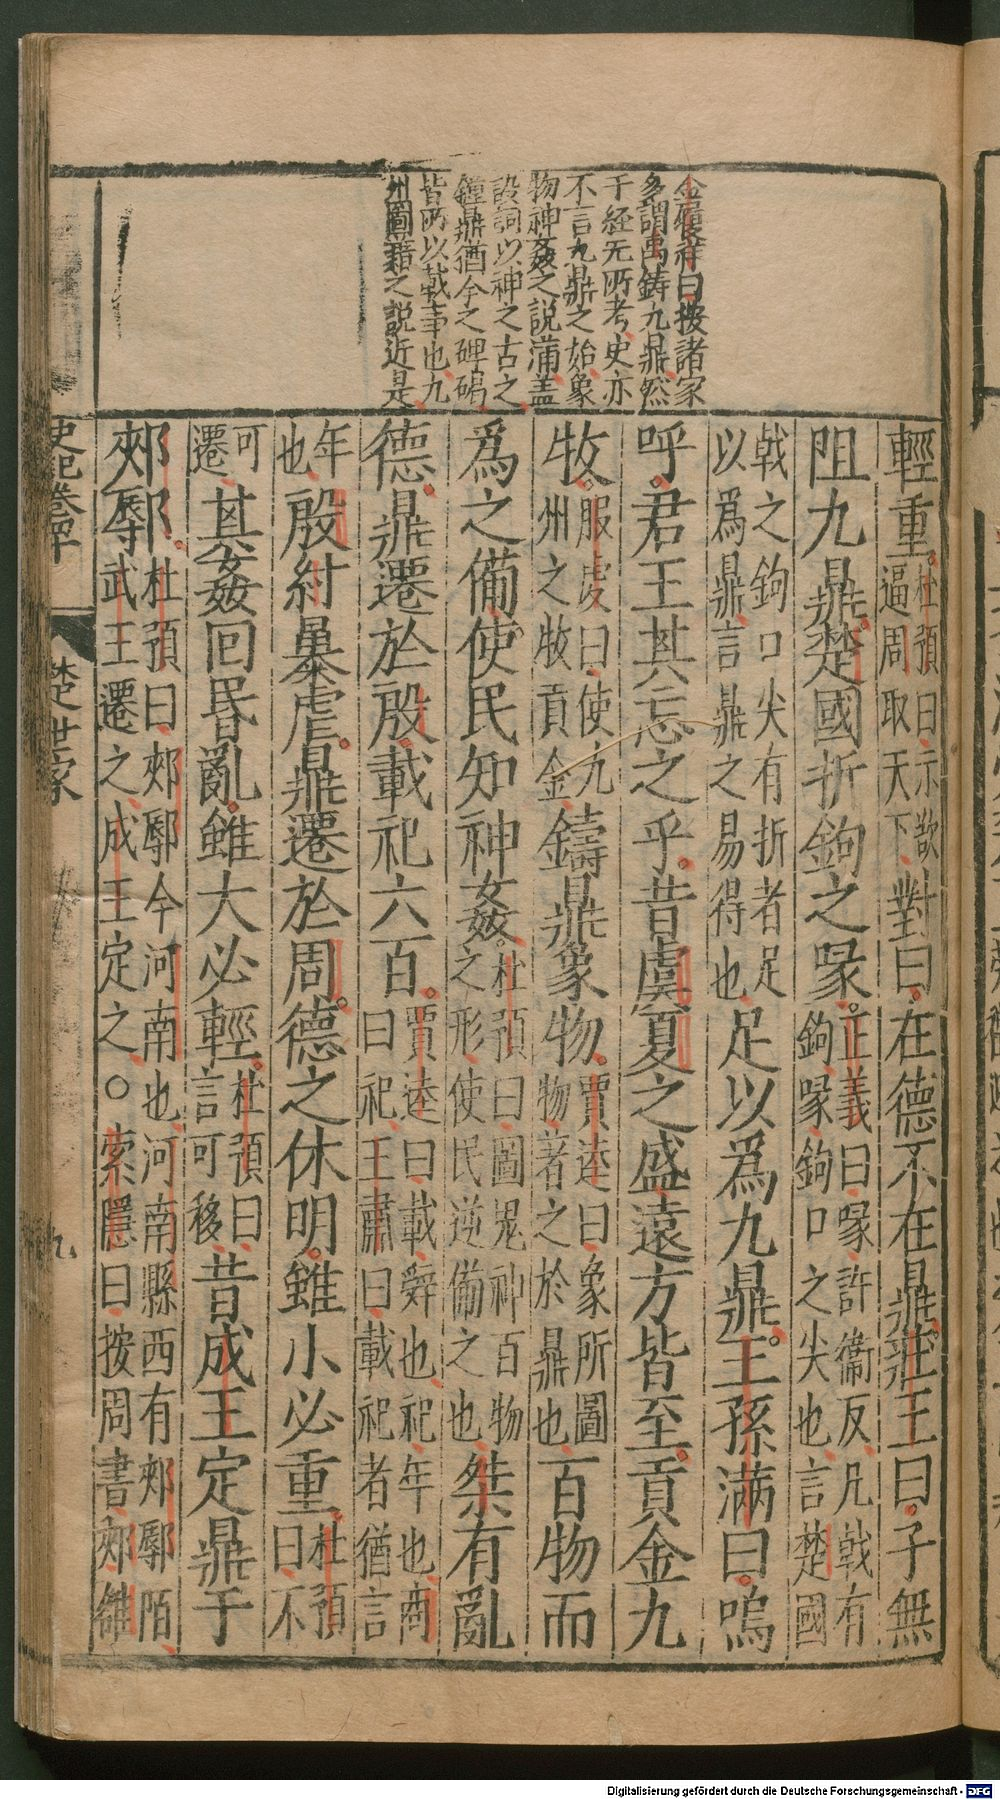 金履祥曰按諸家
多謂禹鑄九鼎然
于経无所考史亦
不言九鼎之始象
物神姦之説蒲盖
設詞以神之古之
鐘鼎猶今之碑碣
皆所以載事也九
州圖籍之説近是
輕重杜預曰示欲逼周取天下對曰在德不在鼎莊王曰子無
阻九鼎楚國折鉤之喙正義曰喙許衞反凡戟有鉤喙鉤口之尖也言楚國
戟之鉤口尖有折者足以爲鼎言鼎之易得也足以爲九鼎王孫滿曰嗚
呼君王其忘之乎昔虞夏之盛遠方皆至貢金九
牧服虔曰使九州之牧貢金鑄鼎象物賈逵曰象所圖物著之於鼎也百物而
爲之備使民知神姦杜預曰圖鬼神百物之形使民逆備之也桀有亂
德鼎遷於殷載祀六百賈逵曰載辤也祀年也商曰祀王肅曰載祀者猶言
年也殷紂暴虐鼎遷於周德之休明雖小必重杜預曰不
可遷其姦回昬亂雖大必輕杜預曰言可移昔成王定鼎于
郟鄏杜預曰郟鄏今河南也河南縣西有郟鄏陌武王遷之成王定之○索隱曰按周書郟雒
史記卷四十
楚世家
九
Digitalisierung gefördert durch die Deutsche Forschungsgemeinschaft - DFG